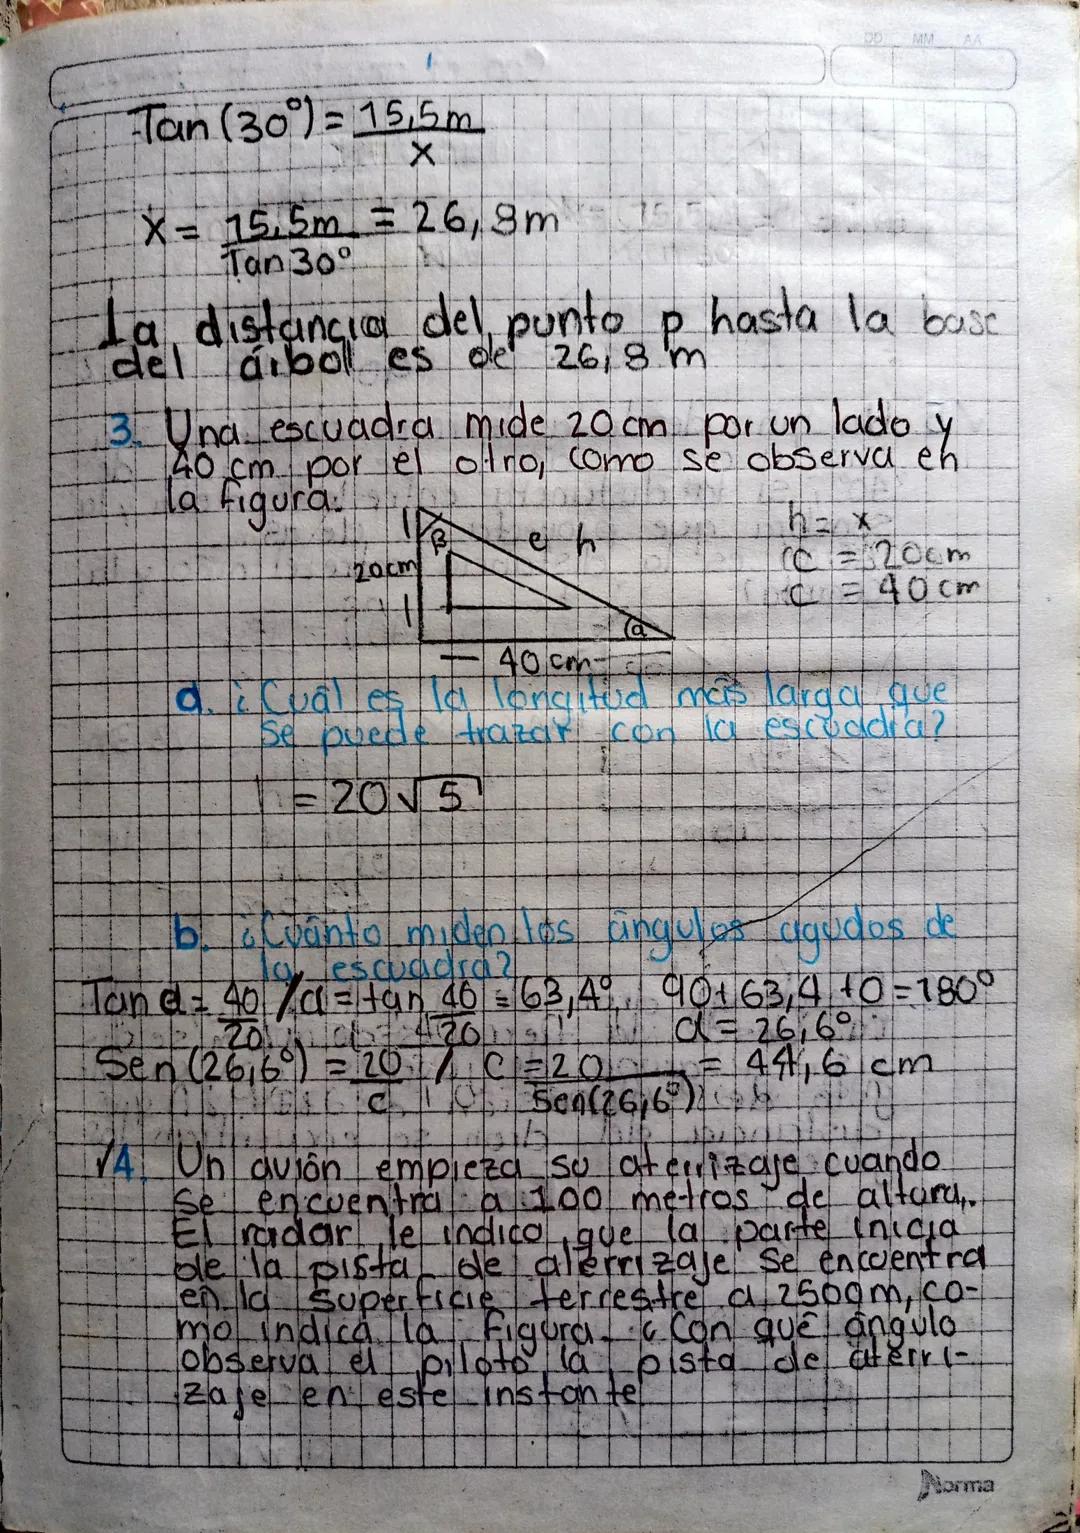 DD MM AA
Tan (30°) = 15,5m
x
x = 15,5m = 26,8m
Tan 30°
La distancia del punto p hasta la base
del árbol es de 26,8 m
3. Una escuadra mide 20 cm por un lado y
40 cm por el otro, como se observa en
la figura.
h = x
β e h
20cm
c = 20cm
c = 40 cm
a
40 cm
a. ¿Cuál es la longitud más larga que
se puede trazar con la escuadra?
= 20√5
b. ¿Cuánto miden los ángulos agudos de
la escuadra?
Tan α = 40 / α = tan 40 = 63,4° 90+63,4+0=180°
20 20 α = 26,6°
Sen (26,6°) = 20 / c = 20 = 44,6 cm
c Sen(26,6°)
√4. Un avión empieza su aterrizaje cuando
se encuentra a 100 metros de altura,.
El radar le indico que la parte inicia
de la pista de aterrizaje se encuentra
en la superficie terrestre a 2500m, co-
mo indica la figura. ¿Con qué ángulo
observa el piloto la pista de aterri-
zaje en este instante
Norma